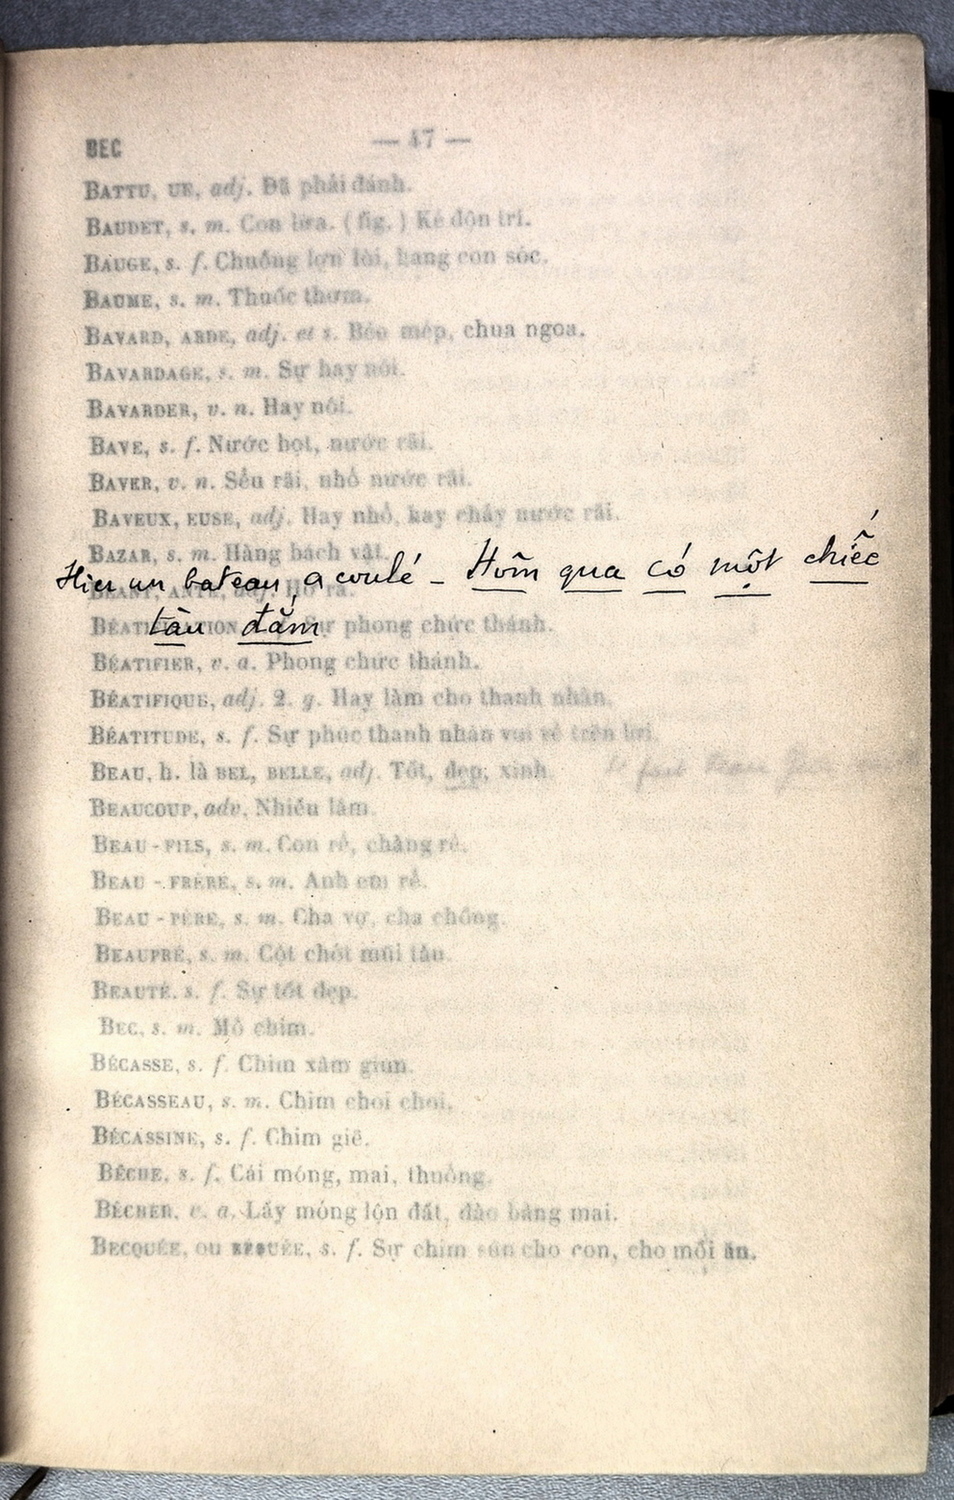 BEC — 47 —
BATTU, UE, adj. Đã phải đánh.
BAUDET, s. m. Con lừa. (fig.) Kẻ độn trí.
BAUGE, s. f. Chuồng lợn lòi, hang con sóc.
BAUME, s. m. Thuốc thơm.
BAVARD, ARDE, adj. et s. Bẻo mép, chua ngoa.
BAVARDAGE, s. m. Sự hay nói.
BAVARDER, v. n. Hay nói.
BAVE, s. f. Nước bọt, nước rãi.
BAVER, v. n. Sều rãi, nhổ nước rãi.
BAVEUX, EUSE, adj. Hay nhổ, hay chảy nước rãi.
BAZAR, s. m. Hàng bách vật.
Hier un bateau a coulé – Hôm qua có một chiếc
BÉANT, ANTE, adj. Hở ra.
tàu đắm
BÉATIFICATION, Sự phong chức thánh.
BÉATIFIER, v. a. Phong chức thánh.
BÉATIFIQUE, adj. 2. g. Hay làm cho thanh nhàn.
BÉATITUDE, s. f. Sự phúc thanh nhàn vui vẻ trên lời.
BEAU, h. là BEL, BELLE, adj. Tốt, đẹp; xinh. Il fait beau
BEAUCOUP, adv. Nhiều lắm.
BEAU-FILS, s. m. Con rể, chàng rể.
BEAU-FRÈRE, s. m. Anh em rể.
BEAU-PÈRE, s. m. Cha vợ, cha chồng.
BEAUPRÉ, s. m. Cột chót mũi tàu.
BEAUTÉ. s. f. Sự tốt đẹp.
BEC, s. m. Mỏ chim.
BÉCASSE, s. f. Chim xâm giun.
BÉCASSEAU, s. m. Chim choi choi.
BÉCASSINE, s. f. Chim giẽ.
BÊCHE, s. f. Cái móng, mai, thuổng.
BÊCHER, v. a. Lấy móng lộn đất, đào bằng mai.
BECQUÉE, OU BÉQUÉE, s. f. Sự chim sún cho con, cho mồi ăn.